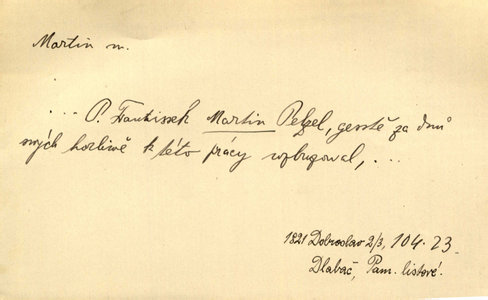 Martin m.
... P. Frantissek Martin Pelzel, gesstě za dnů
swých horliwě k této prácy wzbuzowal, ...
1821 Dobroslav 2/3, 104. 23.
Dlabač, Pam. listové.